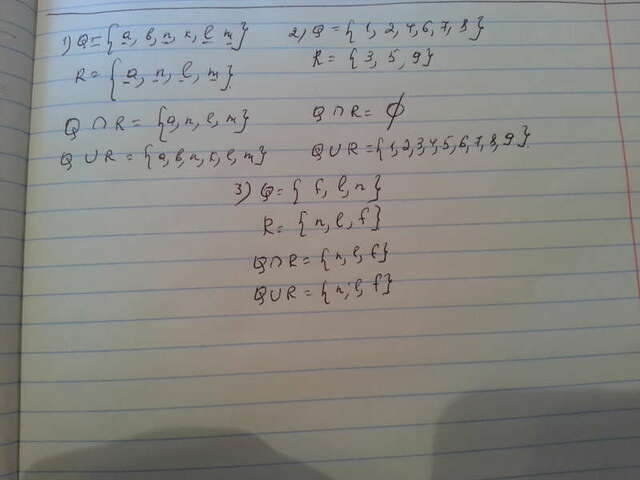 1) Q = {a, b, n, c, l, m}
R = {a, n, l, m}
Q ∩ R = {a, n, l, m}
Q ∪ R = {a, b, n, c, l, m}
2) Q = {1, 2, 4, 6, 7, 8}
R = {3, 5, 9}
Q ∩ R = ∅
Q ∪ R = {1, 2, 3, 4, 5, 6, 7, 8, 9}
3) Q = {f, l, n}
R = {n, l, f}
Q ∩ R = {n, l, f}
Q ∪ R = {n, l, f}